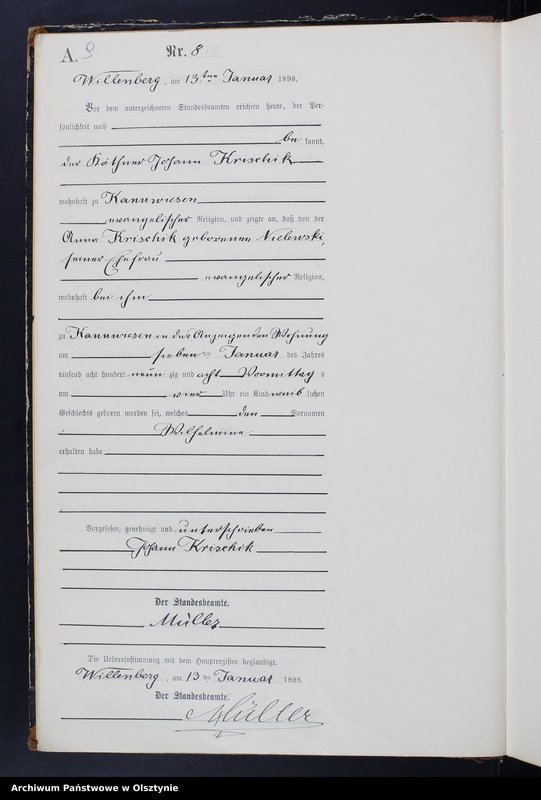 A. 9
Nr. 8
Willenberg, am 13ten Januar 1898.
Vor dem unterzeichneten Standesbeamten erschien heute, der Per-
sönlichkeit nach
be kannt,
der Käthner Johann Krischik
wohnhaft zu Kannwiesen
evangelischer Religion, und zeigte an, daß von der
Anna Krischik geborenen Nielewski,
seiner Ehefrau
evangelischer Religion,
wohnhaft bei ihm
zu Kannwiesen in des Anzeigenden Wohnung
am sieben ten Januar des Jahres
tausend acht hundert neun zig und acht Vormittag s
um vier Uhr ein Kind weib lichen
Geschlechts geboren worden sei, welches den Vornamen
Wilhelmine
erhalten habe
Vorgelesen, genehmigt und unterschrieben
Johann Krischik
Der Standesbeamte.
Müller
Die Uebereinstimmung mit dem Hauptregister beglaubigt.
Willenberg, am 13ten Januar 1898.
Der Standesbeamte.
Müller
Archiwum Państwowe w Olsztynie